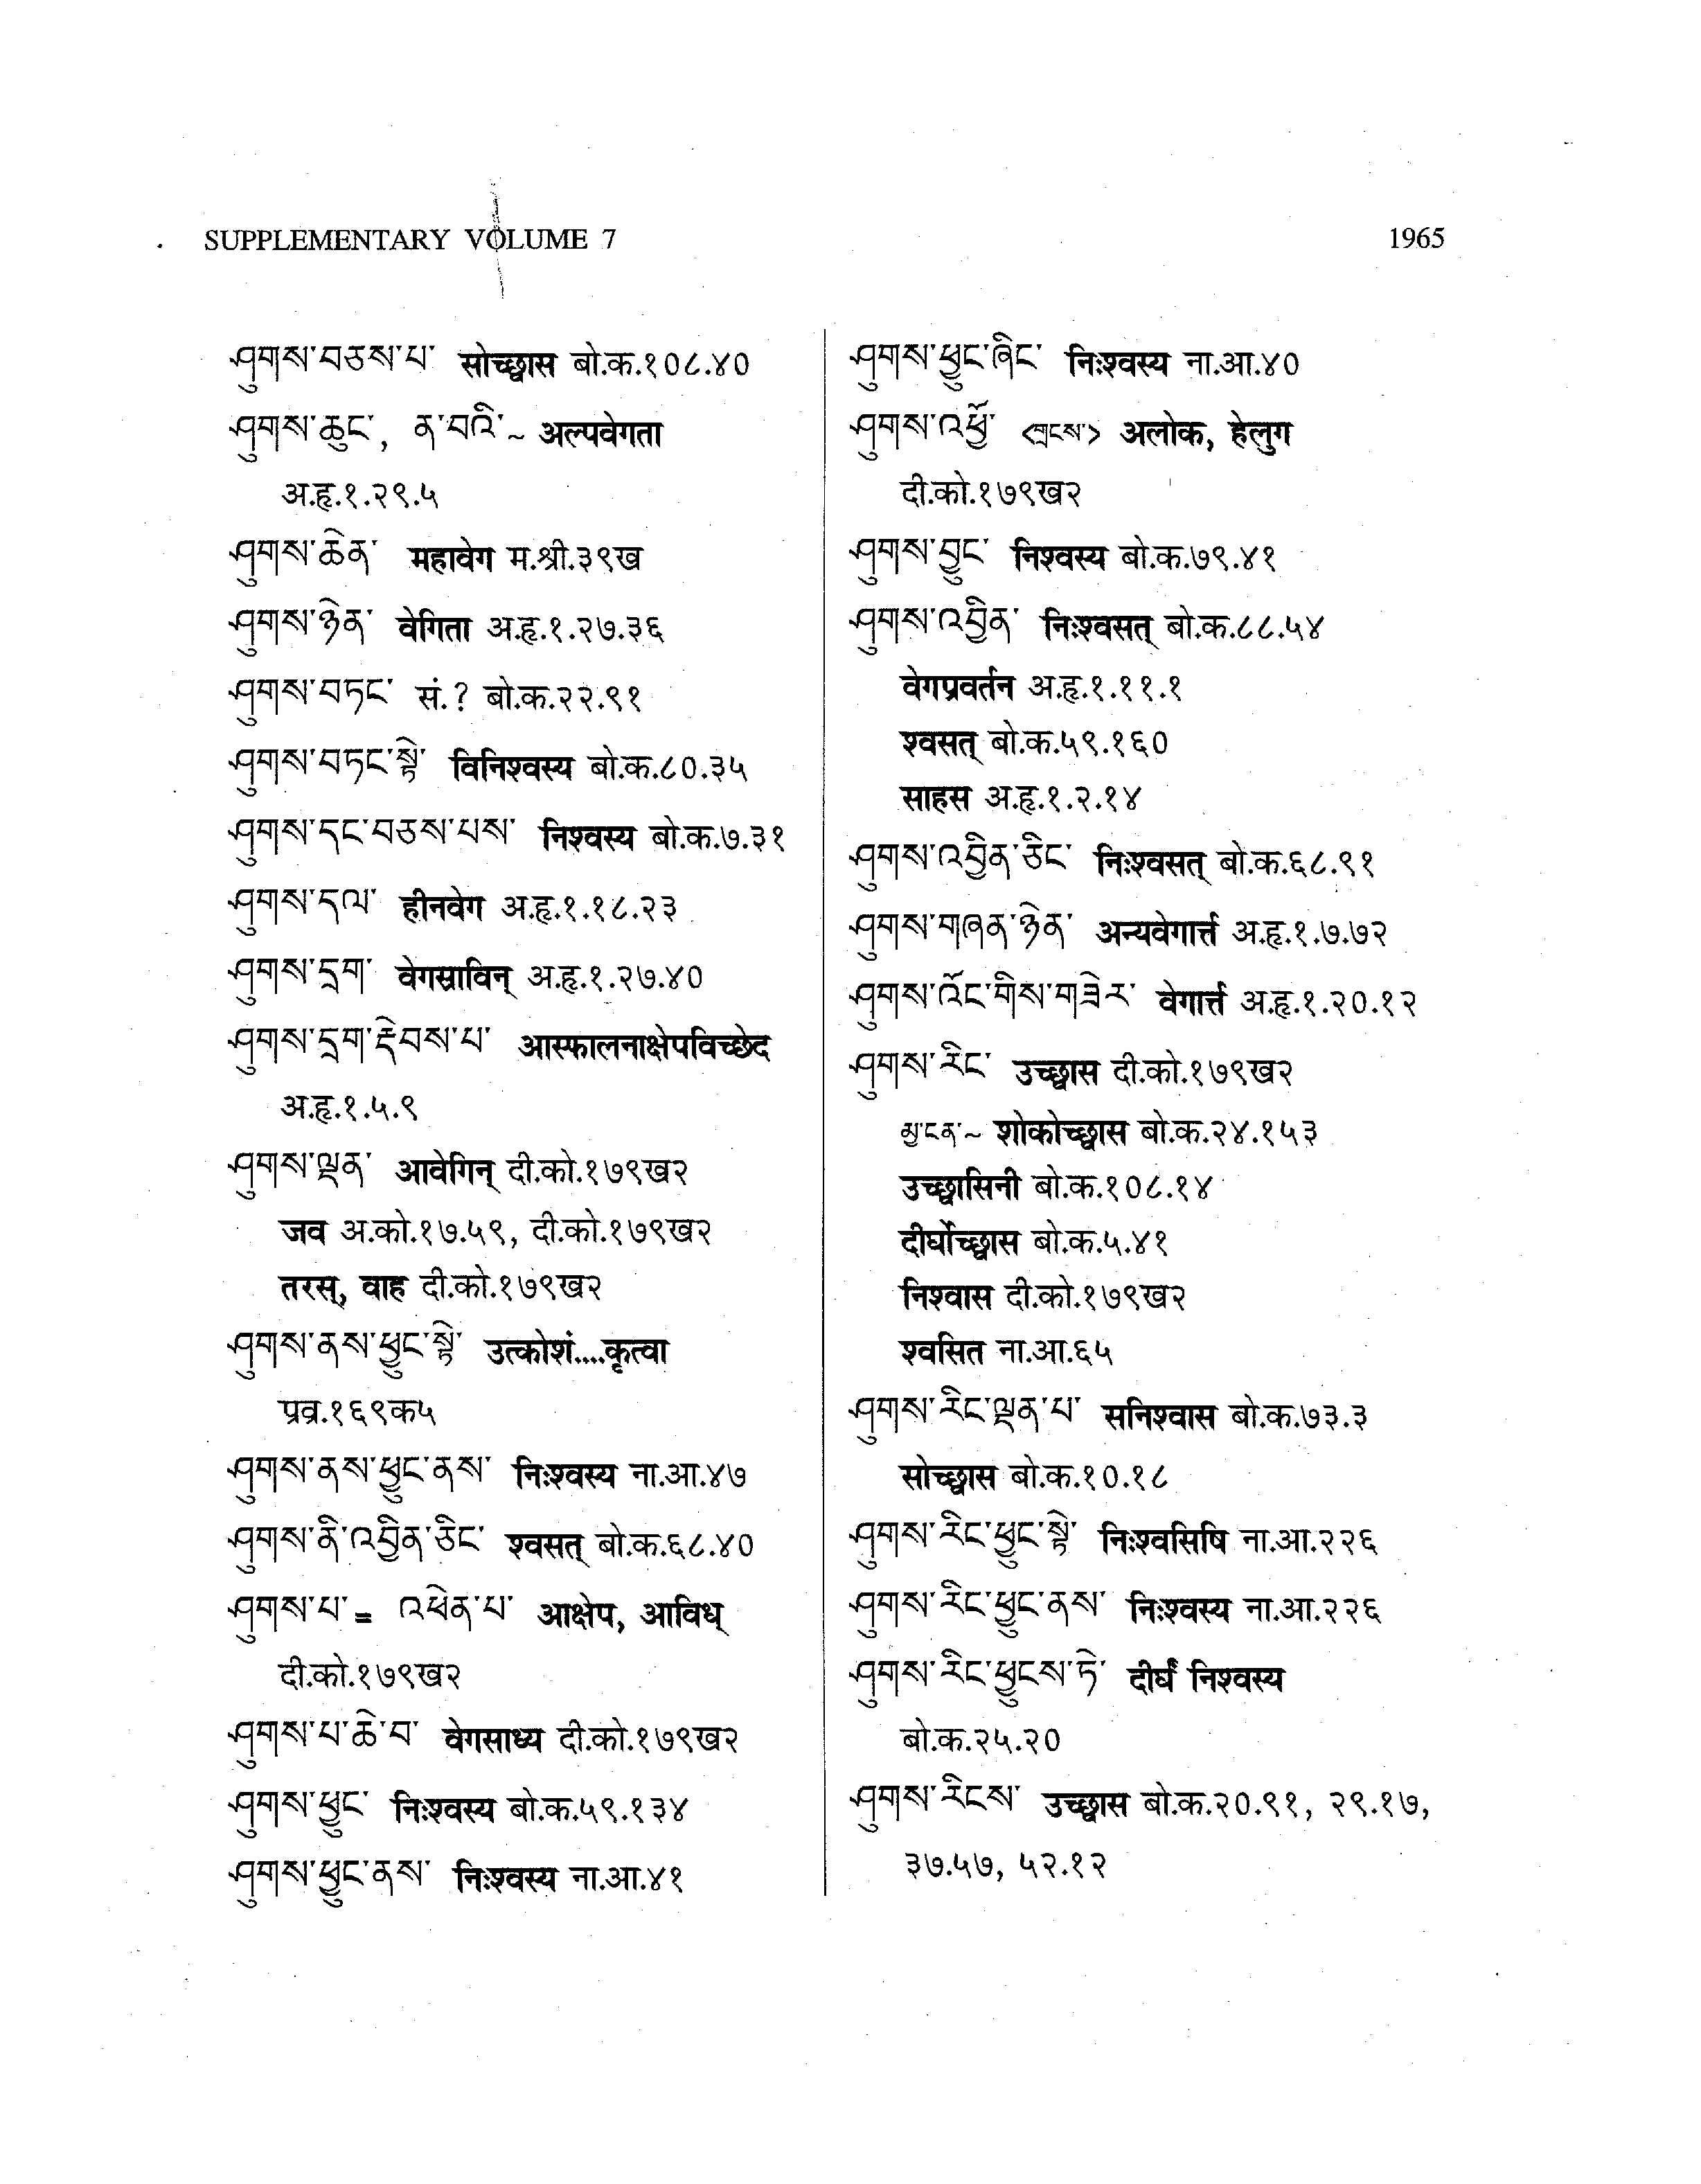 SUPPLEMENTARY VOLUME 7
1965
ཤུགས་བཅས་པ་ सोच्छ्वास बो.क.१०८.४०
ཤུགས་ཆུང་, ན་བའི་~ अल्पवेगता
अ.हृ.१.२९.५
ཤུགས་ཆེན་ महावेग म.श्री.३९ख
ཤུགས་ཉེན་ वेगिता अ.हृ.१.२७.३६
ཤུགས་བཏང་ सं.? बो.क.२२.९१
ཤུགས་བཏང་སྟེ་ विनिश्वस्य बो.क.८०.३५
ཤུགས་དང་བཅས་པས་ निश्वस्य बो.क.७.३१
ཤུགས་དལ་ हीनवेग अ.हृ.१.१८.२३
ཤུགས་དྲག་ वेगस्राविन् अ.हृ.१.२७.४०
ཤུགས་དྲག་རྡེབས་པ་ आस्फालनाक्षेपविच्छेद
अ.हृ.१.५.९
ཤུགས་ལྡན་ आवेगिन् दी.को.१७९ख२
जव अ.को.१७.५९, दी.को.१७९ख२
तरस्, वाह दी.को.१७९ख२
ཤུགས་ནས་ཕྱུང་སྟེ་ उत्कोशं....कृत्वा
प्रव्र.१६९क५
ཤུགས་ནས་ཕྱུང་ནས་ निःश्वस्य ना.आ.४७
ཤུགས་ནི་འབྱིན་ཅིང་ श्वसत् बो.क.६८.४०
ཤུགས་པ་= འཕེན་པ་ आक्षेप, आविध्
दी.को.१७९ख२
ཤུགས་པ་ཆེ་བ་ वेगसाध्य दी.को.१७९ख२
ཤུགས་ཕྱུང་ निःश्वस्य बो.क.५९.१३४
ཤུགས་ཕྱུང་ནས་ निःश्वस्य ना.आ.४१
ཤུགས་ཕྱུང་ཞིང་ निःश्वस्य ना.आ.४०
ཤུགས་འཕྱོ་ <གྲངས་> अलोक, हेलुग
दी.को.१७९ख२
ཤུགས་བྱུང་ निश्वस्य बो.क.७९.४१
ཤུགས་འབྱིན་ निःश्वसत् बो.क.८८.५४
वेगप्रवर्तन अ.हृ.१.११.१
श्वसत् बो.क.५९.१६०
साहस अ.हृ.१.२.१४
ཤུགས་འབྱིན་ཅིང་ निःश्वसत् बो.क.६८.९१
ཤུགས་གཞན་ཉེན་ अन्यवेगार्त्त अ.हृ.१.७.७२
ཤུགས་འོང་གིས་གཟེར་ वेगार्त्त अ.हृ.१.२०.१२
ཤུགས་རིང་ उच्छ्वास दी.को.१७९ख२
མྱ་ངན་~ शोकोच्छ्वास बो.क.२४.१५३
उच्छ्वासिनी बो.क.१०८.१४
दीर्घोच्छ्वास बो.क.५.४१
निश्वास दी.को.१७९ख२
श्वसित ना.आ.६५
ཤུགས་རིང་ལྡན་པ་ सनिश्वास बो.क.७३.३
सोच्छ्वास बो.क.१०.१८
ཤུགས་རིང་ཕྱུང་སྟེ་ निःश्वसिषि ना.आ.२२६
ཤུགས་རིང་ཕྱུང་ནས་ निःश्वस्य ना.आ.२२६
ཤུགས་རིང་ཕྱུངས་ཏེ་ दीर्घं निश्वस्य
बो.क.२५.२०
ཤུགས་རིངས་ उच्छ्वास बो.क.२०.९१, २९.१७,
३७.५७, ५२.१२